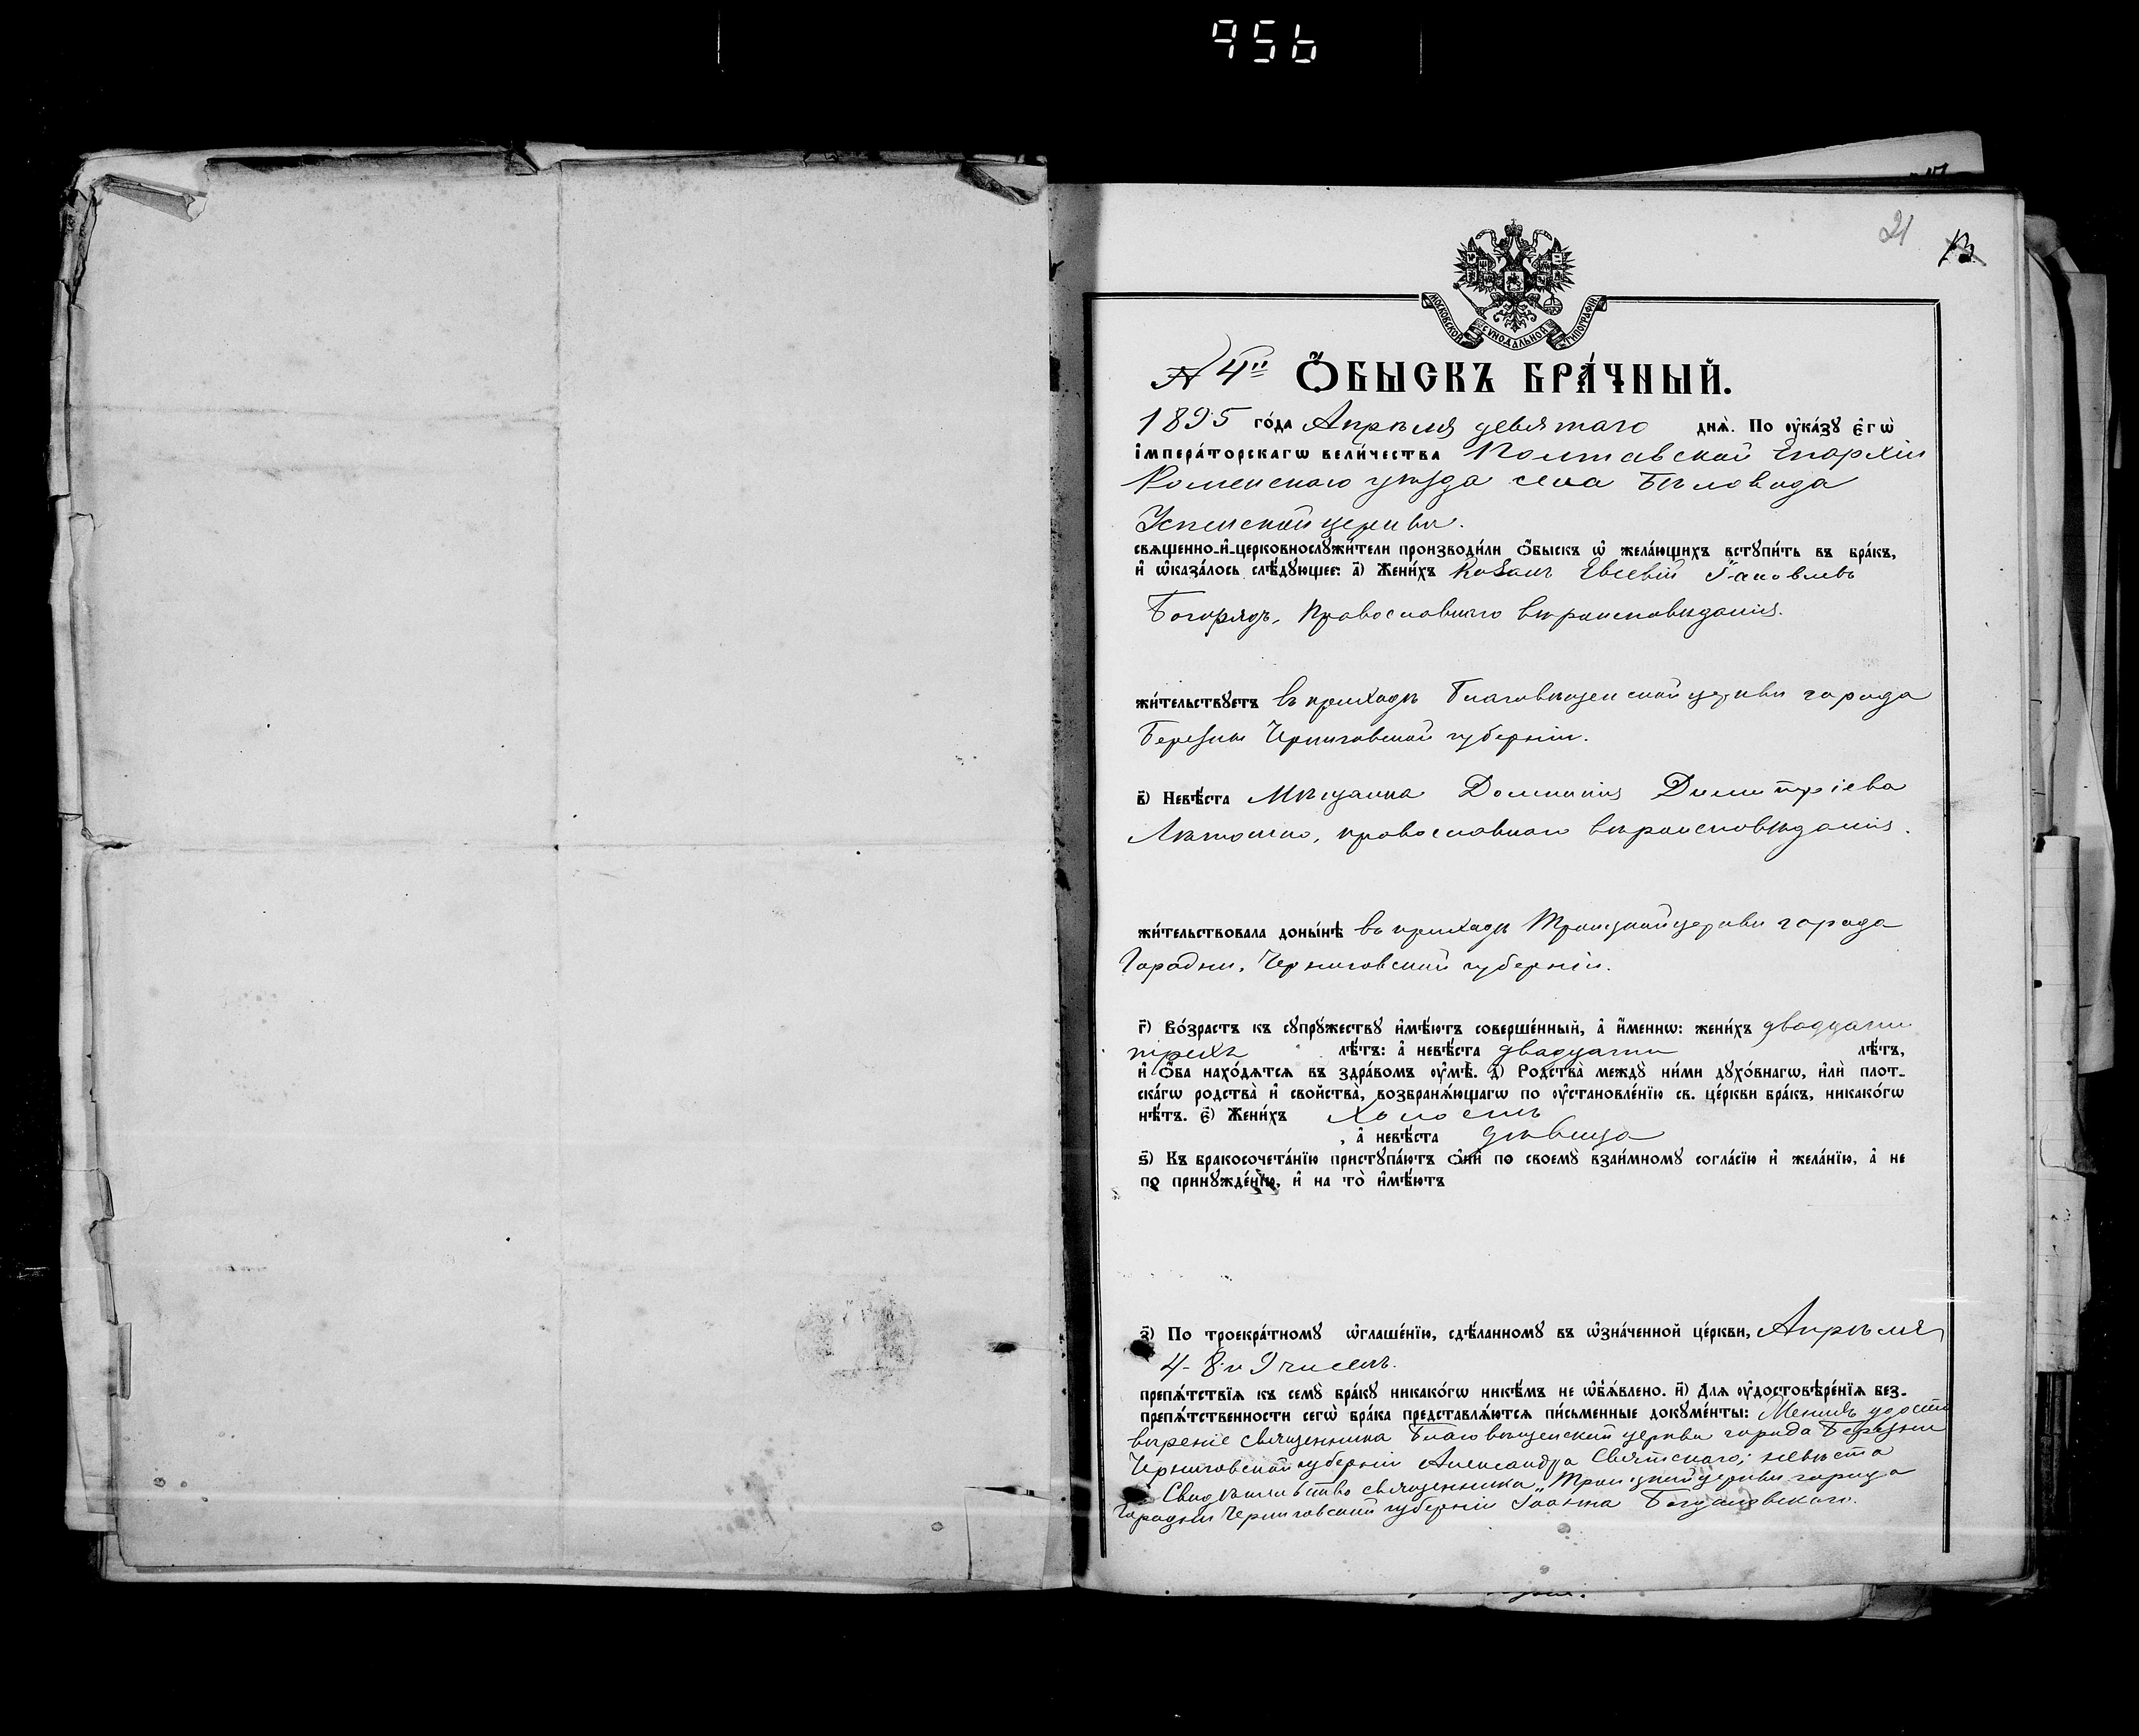 956
21
13
МОСКОВСКОЙ СУНОДАЛЬНОЙ ТИПОГРАФІИ
№ 4й ѺБЫСКЪ БРА́ЧНЫЙ.
1895 го́да Апрѣля девятаго днѧ̀. По ᲂу҆ка́зꙋ є҆гѡ̀
і҆мпера́торскагѡ вели́чества Полтавской Епархіи
Роменскаго уѣзда села Бѣловода
Успенской церкви.
свѧщенно-и҆-церковнослꙋжи́тели производи́ли ѻ҆́быскъ ѡ҆ жела́ющихъ встꙋпи́ть въ бра́къ,
и҆ ѡ҆каза́лось слѣ́дꙋющее: а҃) Жени́хъ Козакъ Евсевій Іаковлевъ
Богорядъ, Православнаго вѣроисповѣданія.
жи́тельствꙋетъ въ приходѣ Благовѣщенской церкви города
Березны Черниговской губерніи.
в҃) Невѣ́ста Мѣщанка Домникія Димитріева
Лятошко, православнаго вѣроисповѣданія.
жи́тельствовала доны́нѣ въ приходѣ Троицкой церкви города
Городни, Черниговской губерніи.
г҃) Во́зрастъ къ сꙋпрꙋ́жествꙋ и҆мѣ́ютъ соверше́нный, а҆ и҆́меннѡ: жени́хъ двадцати
трехъ лѣ́тъ: а҆ невѣ́ста двадцати лѣ́тъ,
и҆ ѻ҆́ба нахо́дѧтсѧ въ здра́вомъ ᲂу҆мѣ̀. д҃) Родства̀ междꙋ̀ ни́ми дꙋхо́внагѡ, и҆лѝ плот-
ска́гѡ родства̀ и҆ сво́йства̀, возбранѧ́ющагѡ по ᲂу҆становле́нїю св. це́ркви бра́къ, никако́гѡ
нѣ́тъ. є҃) Жени́хъ холостъ
, а҆ невѣ́ста дѣвица
ѕ҃) Къ бракосочета́нїю пристꙋпа́ютъ ѻ҆нѝ по своемꙋ̀ взаи́мномꙋ согла́сїю и҆ жела́нїю, а҆ не
по принꙋжде́нїю, и҆ на то̀ и҆мѣ́ютъ
з҃) По троекра́тномꙋ ѡ҆глаше́нїю, сдѣ́ланномꙋ въ ѡ҆зна́ченной це́ркви, Апрѣля
4- 8 и 9 чиселъ.
препѧ́тствїѧ къ семꙋ̀ бра́кꙋ никако́гѡ никѣ́мъ не ѡ҆б̾ѧ́влено. и҃) Длѧ ᲂу҆достовѣре́нїѧ без-
препѧ́тственности сегѡ̀ бра́ка представлѧ́ютсѧ пи́сьменные докꙋме́нты: Женихъ удосто
вѣреніе священника Благовѣщенской церкви города Березны
Черниговской губерніи Александра Святскаго; невѣста
Свидѣтельство священника Троицкой церкви города
Городни Черниговской губерніи Іоанна